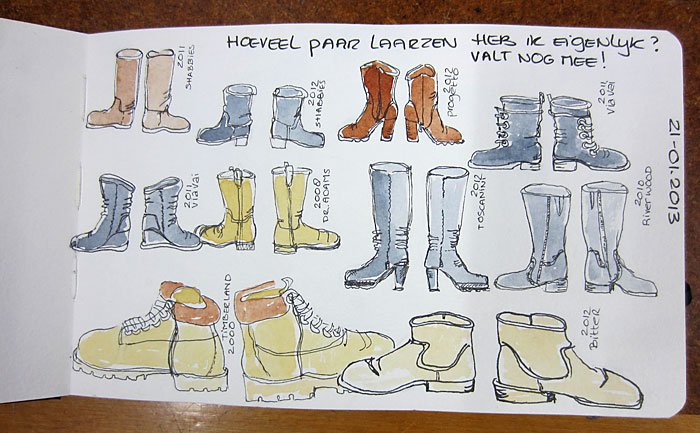 HOEVEEL PAAR LAARZEN HEB IK EIGENLYK?
VALT NOG MEE!
21-01-2013
2011
SHABBIES
2012
SHABBIES
2012
progetto
2011
Via Vai
2011
Via Vai
2008
DR. ADAMS
2012
TOSCANINI
2010
RIVERWOOD
TIMBERLAND
2008
2012
Bitter